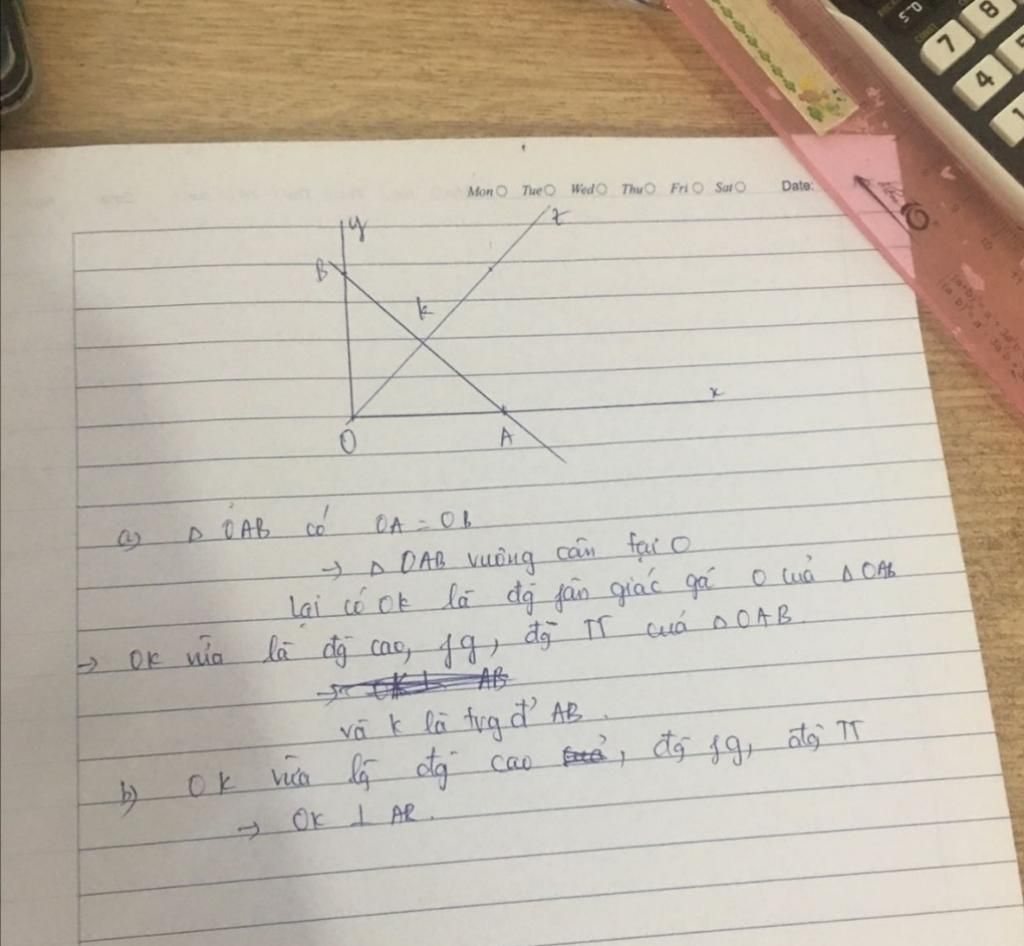 7
8
4
5
1
0.5
Mon Tue Wed Thu Fri Sat Date:
y
z
B
k
x
O
A
a) Δ OAB có OA = OB
→ Δ OAB vuông cân tại O
lại có OK là đg fân giác gá O của Δ OAB
→ OK vừa là đg cao, fg, đg TT cuả Δ OAB.
và K là trg đ' AB.
b) OK vừa là đg cao, đg fg, đg TT
→ OK ⊥ AB.